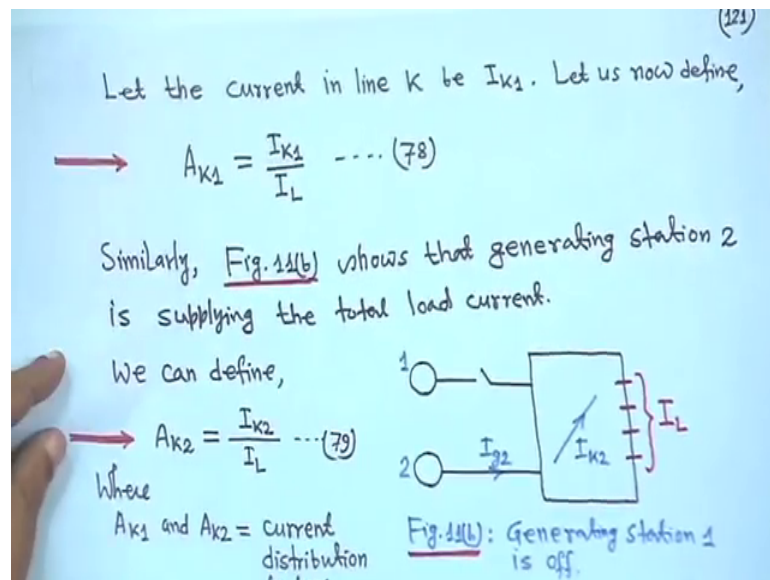 (121)
Let the current in line K be I_K1. Let us now define,
A_K1 = I_K1 / I_L ---- (78)
Similarly, Fig. 11(b) shows that generating station 2
is supplying the total load current.
We can define,
A_K2 = I_K2 / I_L ---(79)
Where
A_K1 and A_K2 = current
distribution
1
2
I_g2
I_K2
I_L
Fig. 11(b): Generating station 1
is off.